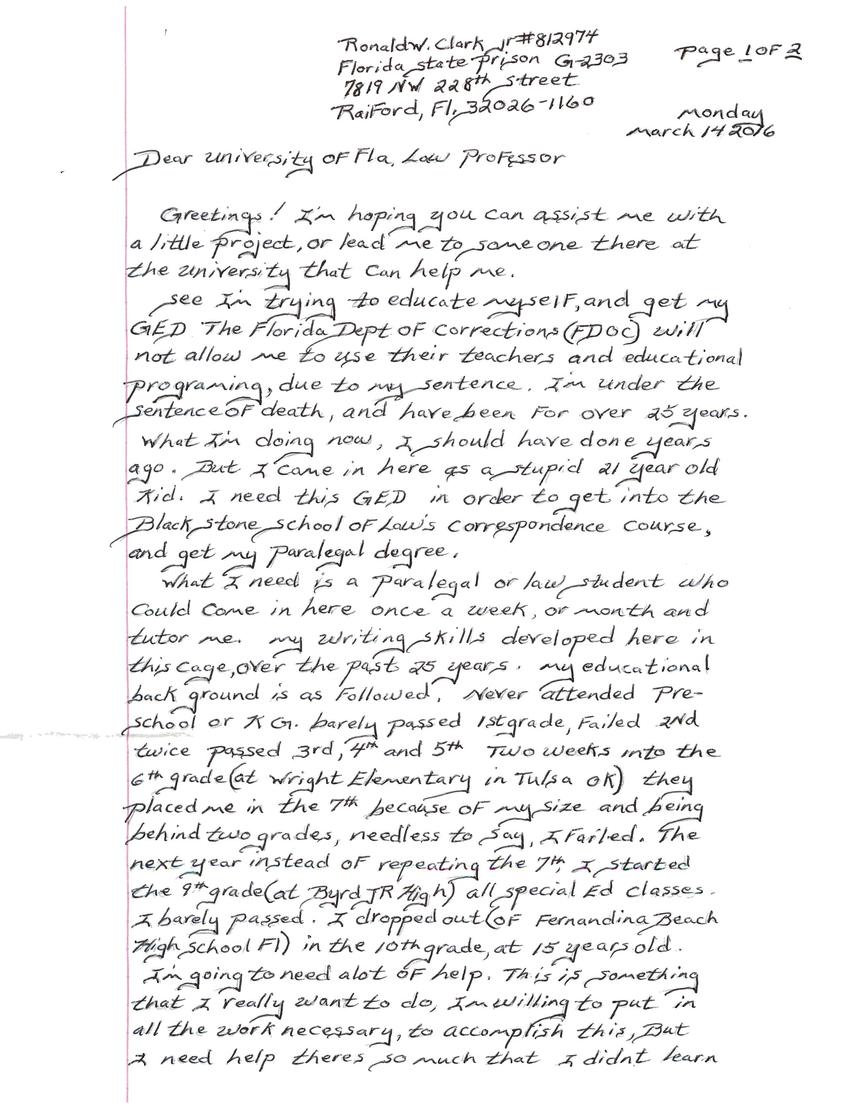 Ronald W. Clark jr #812974
Florida state prison G-2303
7819 NW 228th street
Raiford, Fl, 32026-1160
Page 1 OF 2
Monday
March 14 2016
Dear University OF Fla, Law Professor
Greetings! I'm hoping you can assist me with
a little project, or lead me to someone there at
the university that can help me.
see I'm trying to educate myself, and get my
GED The Florida Dept OF Corrections (FDOC) will
not allow me to use their teachers and educational
programing, due to my sentence. I'm under the
sentence OF death, and have been For over 25 years.
What I'm doing now, I should have done years
ago. But I came in here as a stupid 21 year old
Kid. I need this GED in order to get into the
Blackstone School OF Law's correspondence course,
and get my Paralegal degree.
What I need is a Paralegal or law student who
Could Come in here once a week, or month and
tutor me. my writing skills developed here in
this cage, over the past 25 years. my educational
back ground is as Followed, Never attended Pre-
school or K G. barely passed 1st grade, Failed 2nd
twice passed 3rd, 4th and 5th Two weeks into the
6th grade (at Wright Elementary in Tulsa OK) they
placed me in the 7th because OF my size and being
behind two grades, needless to say, I Failed. The
next year instead OF repeating the 7th, I started
the 9th grade (at Byrd JR High) all special Ed classes.
I barely passed. I dropped out (OF Fernandina Beach
High School Fl) in the 10th grade, at 15 years old.
I'm going to need alot OF help. This is something
that I really want to do, I'm willing to put in
all the work necessary, to accomplish this, But
I need help theres so much that I didnt learn